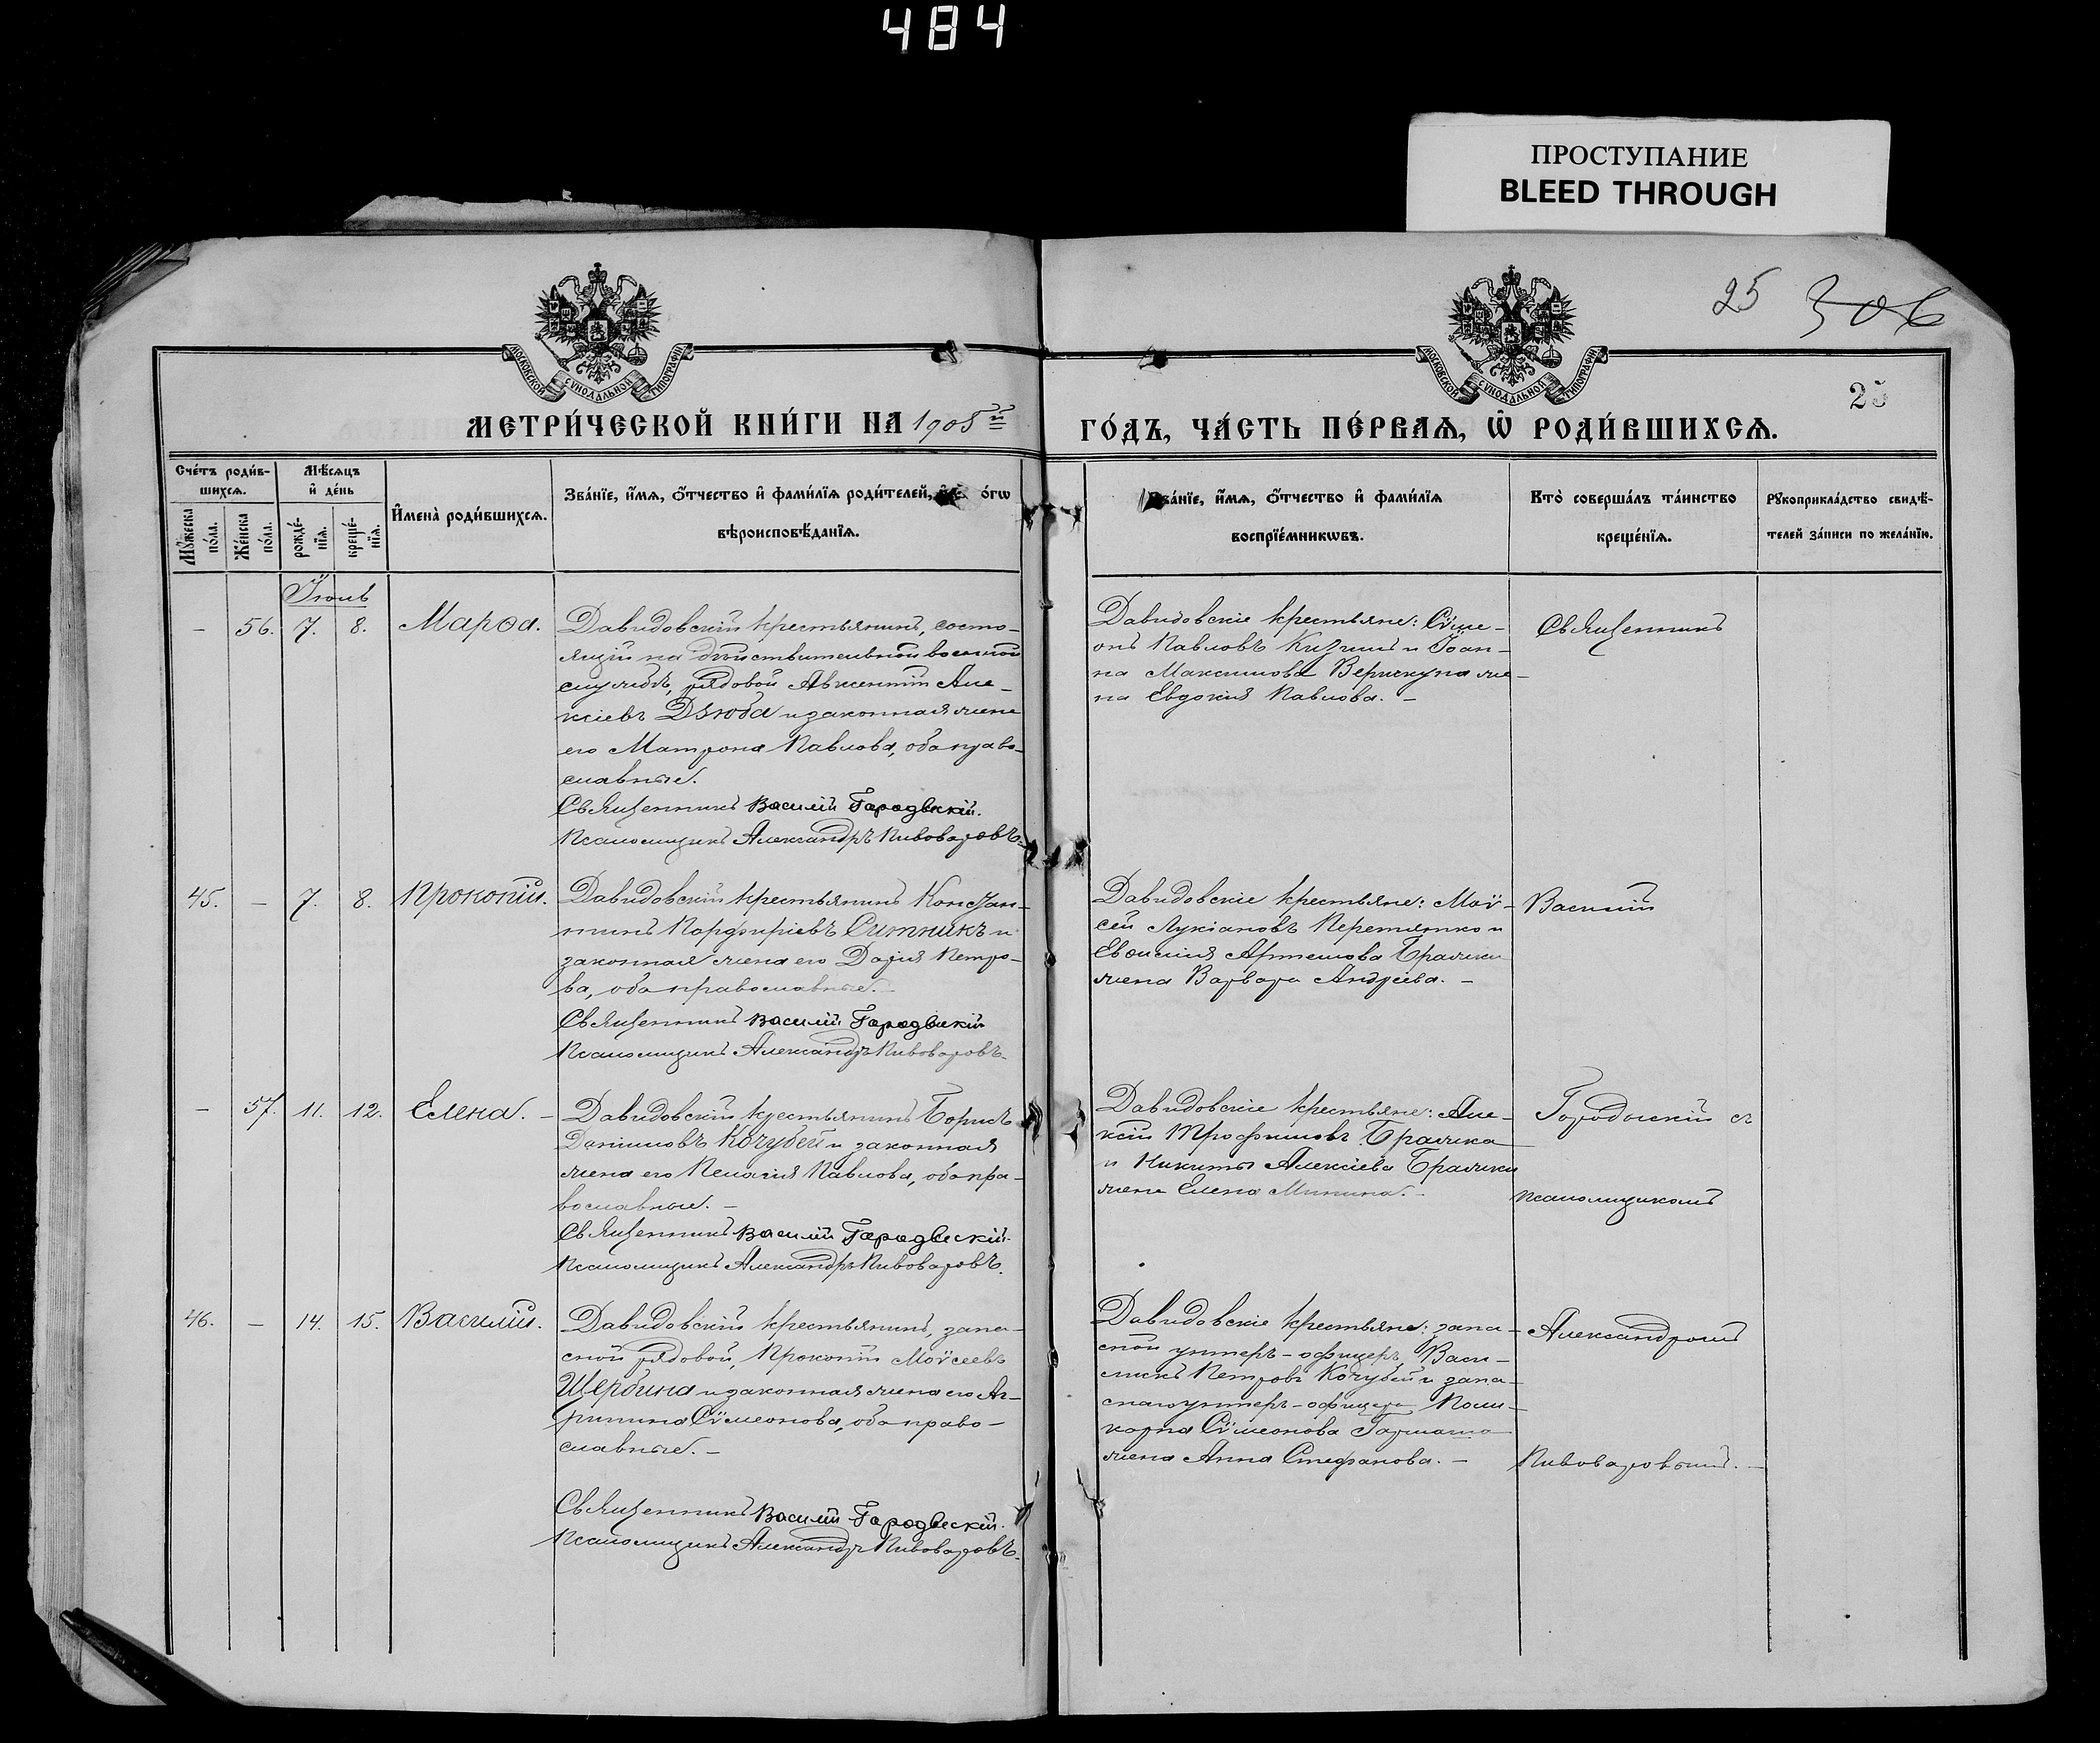 484
ПРОСТУПАНИЕ
BLEED THROUGH
25 306
МОСКОВСКОЙ СѴНОДАЛЬНОЙ ТИПОГРАФІИ
МОСКОВСКОЙ СѴНОДАЛЬНОЙ ТИПОГРАФІИ
25
МЕТРИ́ЧЕСКОЙ КНИ́ГИ НА 1905й
ГО́ДЪ, ЧА́СТЬ ПЕ́РВАѦ, Ѡ҆ РОДИ́ВШИХСѦ.
Сче́тъ роди́в-
шихсѧ.
Мꙋ́жеска по́ла.
Же́нска по́ла.
Мѣ́сѧцъ
и҆ де́нь
рожде́-
нїѧ.
креще́-
нїѧ.
И҆мена̀ роди́вшихсѧ.
Зва́нїе, и҆́мѧ, ѻ҆́тчество и҆ фамѝлїѧ роди́телей,
вѣроисповѣ́данїѧ.
зва́нїе, и҆́мѧ, ѻ҆́тчество и҆ фами́лїѧ
воспрїе́мникѡвъ.
Кто̀ соверша́лъ та́инство
креще́нїѧ.
Рꙋкоприкла́дство свидѣ́-
телей за́писи по жела́нїю.
Іюнь
— 56. 7. 8. Марѳа.
Давидовскій крестьянинъ, состо-
ящій на дѣйствительной военной
службѣ, рядовой Авксентій Але-
ксіевъ Дзюба и законная жена
его Матрона Павлова, оба право-
славные.
Священникъ Василій Городвскій.
Псаломщикъ Александръ Пивоваровъ.
Давидовскіе крестьяне: Сѵме-
онъ Павловъ Кизимъ и Іоан-
на Максимова Верискуна же-
на Евдокія Павлова. —
Священникъ
45. — 7. 8. Прокопій.
Давидовскій крестьянинъ Констан-
тинъ Порфиріевъ Ситникъ и
законная жена его Дарія Петро-
ва, оба православные. —
Священникъ Василій Городвскій
Псаломщикъ Александръ Пивоваровъ.
Давидовскіе крестьяне: Моѵ-
сей Лукіановъ Перетятко и
Евѳимія Артемова Бражки
жена Варвара Андреева. —
Василій
— 57. 11. 12. Елена. —
Давидовскій крестьянинъ Борисъ
Даніиловъ Кочубей и законная
жена его Пелагія Павлова, оба пра-
вославные. —
Священникъ Василій Городвскій.
Псаломщикъ Александръ Пивоваровъ.
Давидовскіе крестьяне: Але-
ксій Трофимовъ Бражка
и Никиты Алексіева Бражки
жена Елена Минина. —
Городвскій съ
псаломщикомъ
46. — 14. 15. Василій.
Давидовскій крестьянинъ, запа-
сной рядовой, Прокопій Моѵсеевъ
Щербина и законная жена его Аг-
рипина Сѵмеонова, оба право-
славные. —
Священникъ Василій Городвскій.
Псаломщикъ Александръ Пивоваровъ.
Давидовскіе крестьяне: запа-
сной унтеръ-офицеръ Васи-
лискъ Петровъ Кочубей и запа-
снаго унтеръ-офицера Поли-
карпа Сѵмеонова Гармаша
жена Анна Стефанова. —
Александромъ
Пивоваровымъ. —